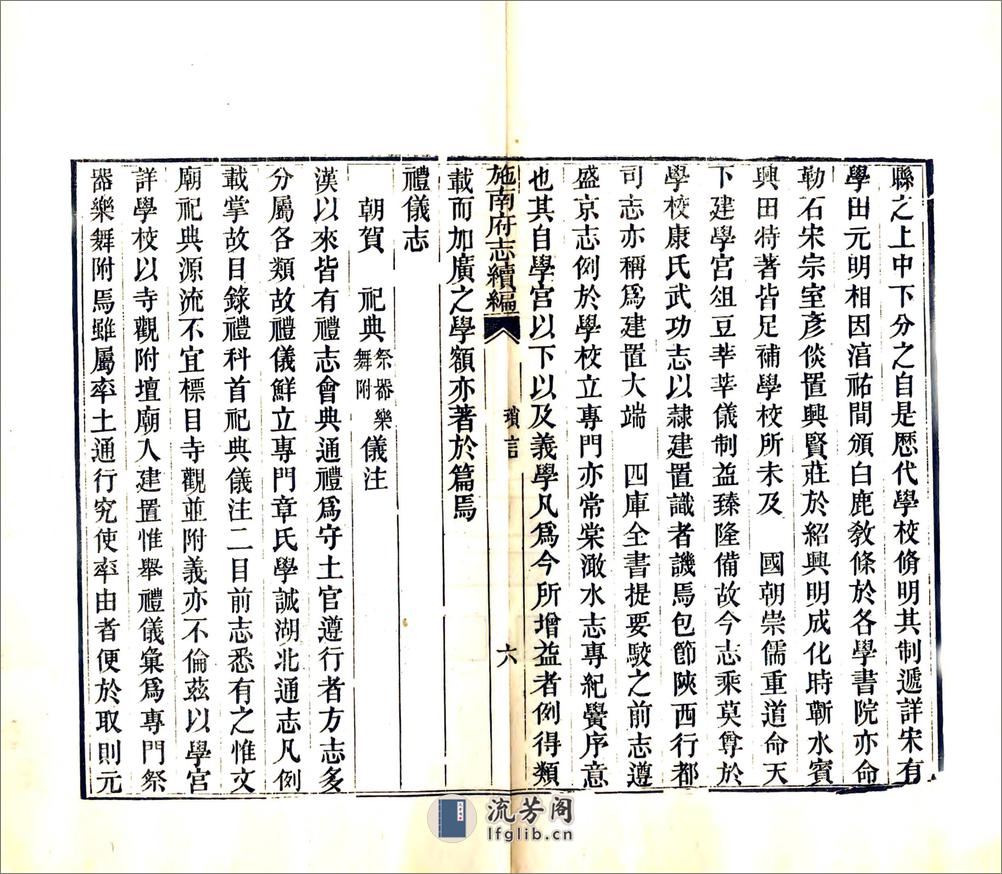 縣之上中下分之自是歷代學校脩明其制遞詳宋有
學田元明相因淯祐間頒白鹿敎條於各學書院亦命
勒石宋宗室彥倓置興賢莊於紹興明成化時蘄水賓
興田特著皆足補學校所未及　國朝崇儒重道命天
下建學宮俎豆莘莘儀制益臻隆備故今志乘莫尊於
學校康氏武功志以隸建置識者譏焉包節陝西行都
司志亦稱爲建置大端　四庫全書提要駮之前志遵
盛京志例於學校立專門亦常棠澉水志專紀黌序意
也其自學宮以下以及義學凡爲今所增益者例得類
施南府志續編　瑣言　六
載而加廣之學額亦著於篇焉
禮儀志
朝賀　祀典祭器樂舞附　儀注
漢以來皆有禮志會典通禮爲守土官遵行者方志多
分屬各類故禮儀鮮立專門章氏學誠湖北通志凡例
載掌故目錄禮科首祀典儀注二目前志悉有之惟文
廟祀典源流不宜標目寺觀並附義亦不倫茲以學宮
詳學校以寺觀附壇廟入建置惟舉禮儀彙爲專門祭
器樂舞附焉雖屬率土通行究使率由者便於取則元
流芳阁
lfglib.cn